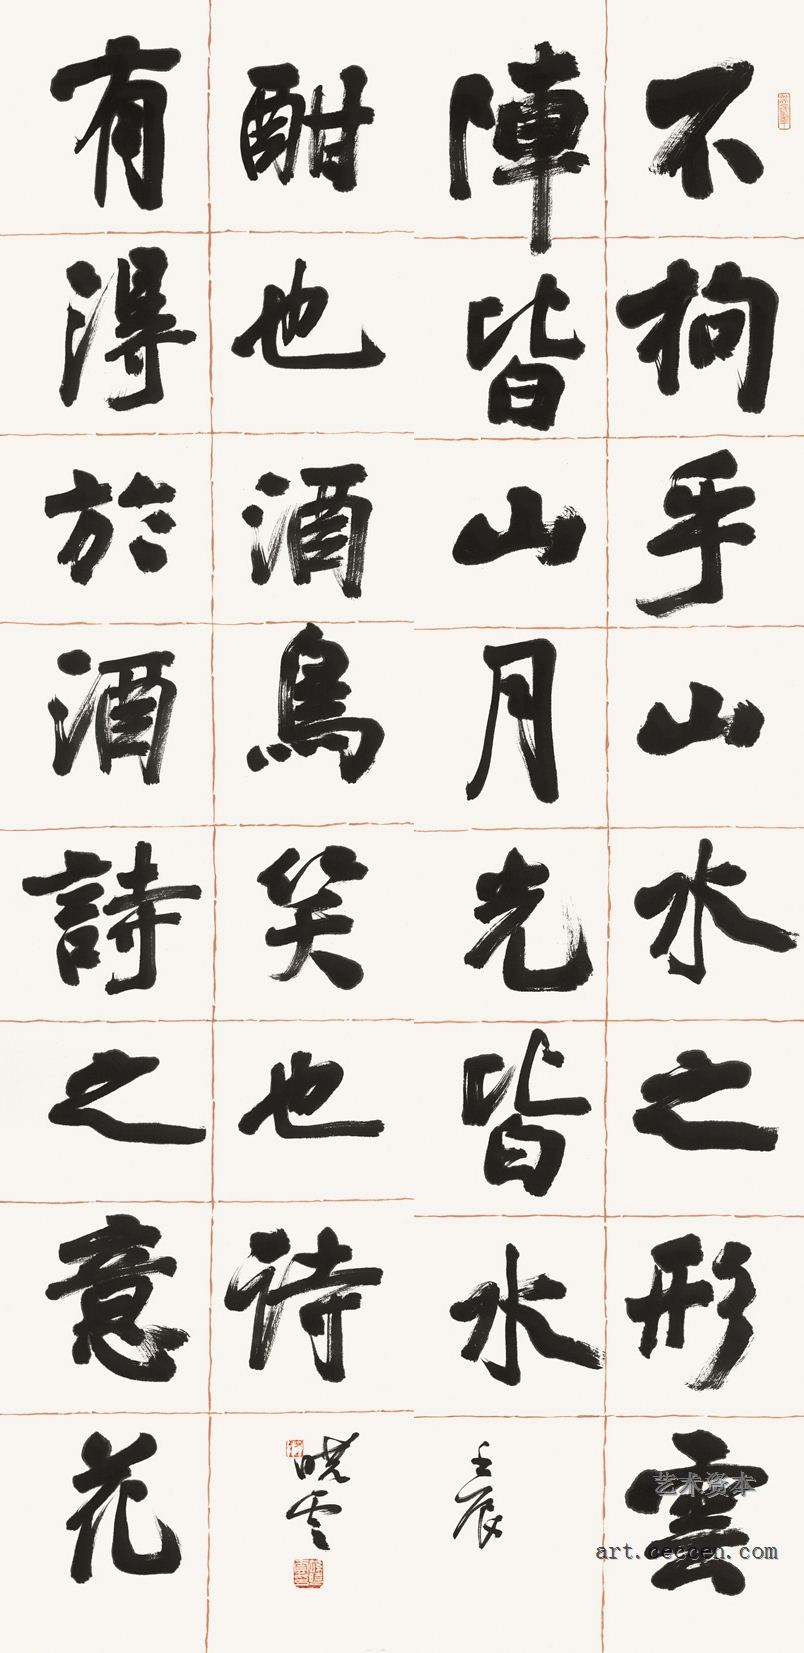 不拘乎山水之形雲
陣皆山月光皆水
壬辰
有得於酒詩之意花
酣也酒鳥笑也诗
晓云
艺术资本
art.ceccen.com